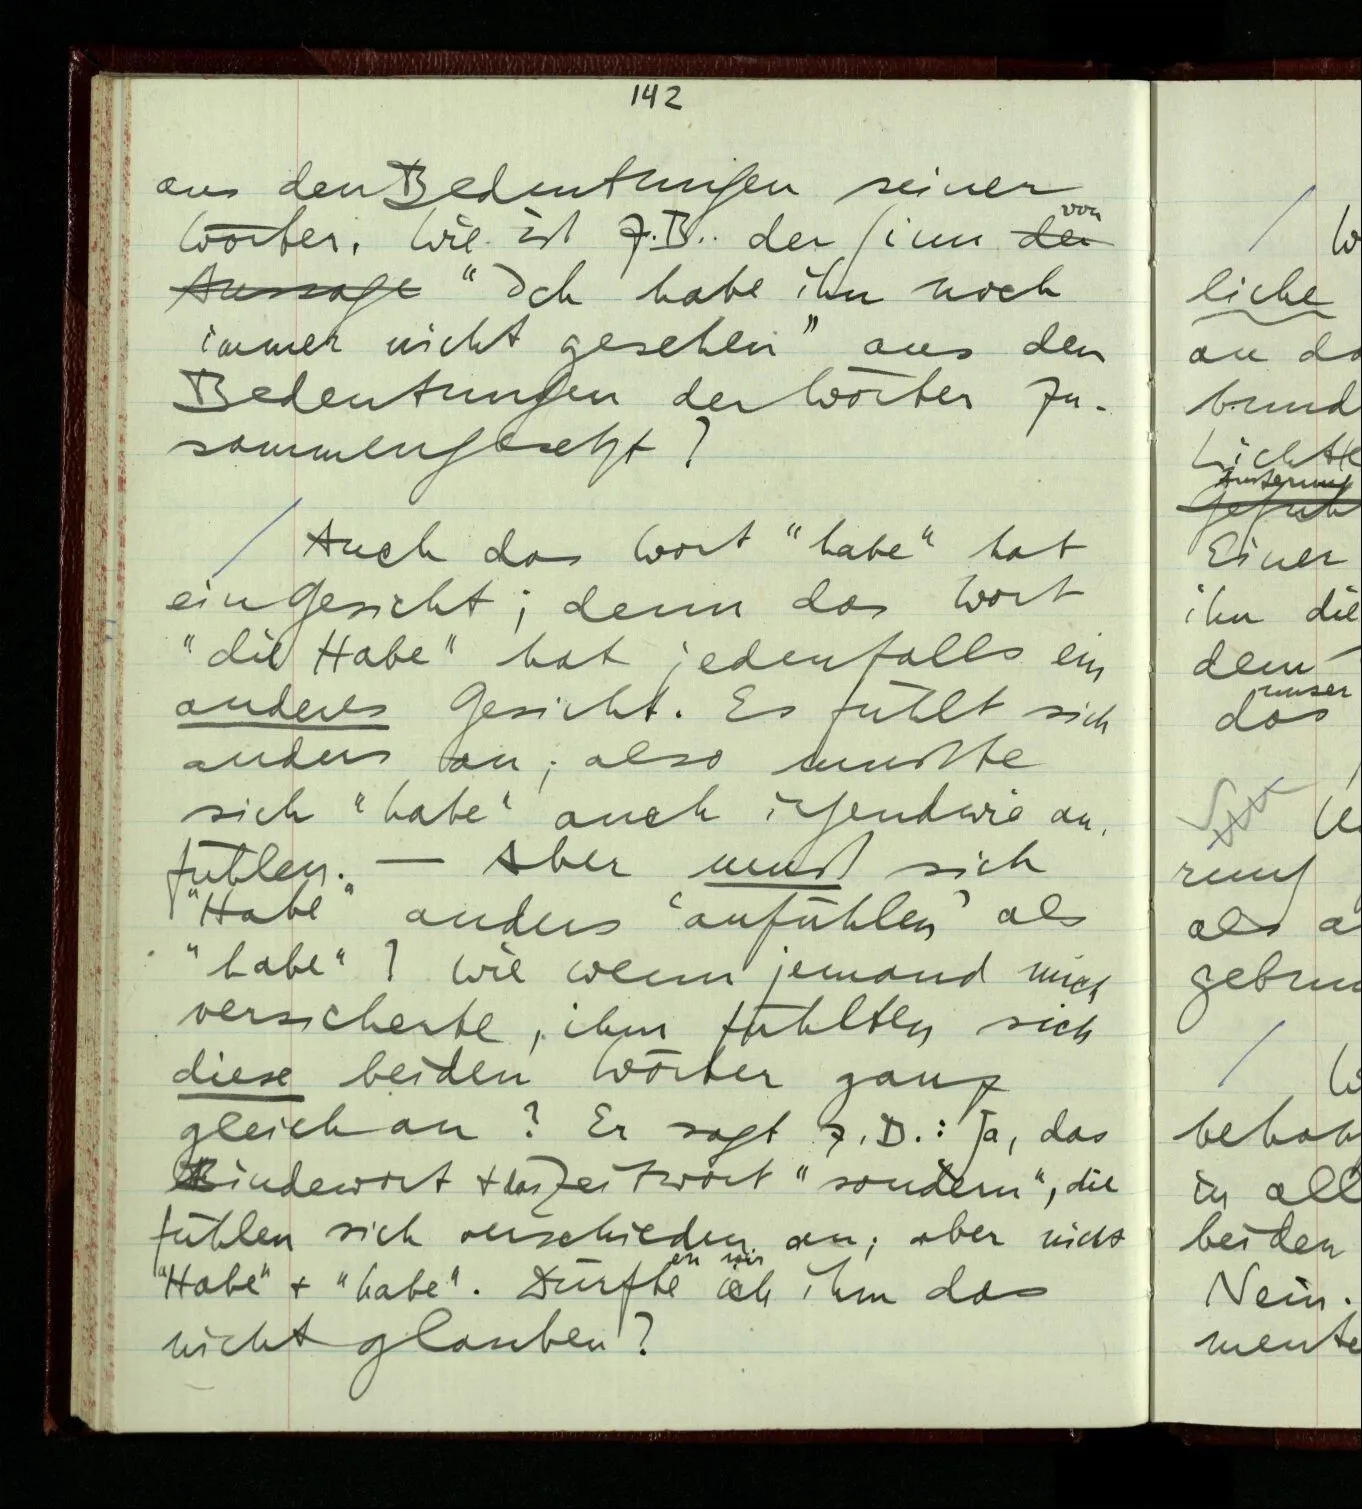 142
aus den Bedeutungen seiner
Wörter. Wie ist z.B. der Sinn der von
Aussage "Ich habe ihn noch
immer nicht gesehen" aus den
Bedeutungen der Wörter zu-
sammengesetzt?
Auch das Wort "habe" hat
ein Gesicht; denn das Wort
"die Habe" hat jedenfalls ein
anderes Gesicht. Es fühlt sich
anders an; also mußte
sich "habe" auch irgendwie an-
fühlen. — Aber muß sich
"Habe" anders 'anfühlen' als
"habe"? Wie wenn jemand mich
versicherte, ihm fühlten sich
diese beiden Wörter ganz
gleich an? Er sagt z.B.: Ja, das
Bindewort + das Zeitwort "sondern", die
fühlen sich verschieden an; aber nicht
"Habe" + "habe". Dürfte en wir ich ihm das
nicht glauben?
W
liche
an da
bund
Licht
Äußerung
Gefüh
Einer
ihn die
dem
unser
das
rung
als a
gebrau
W
behau
in all
beiden
Nein.
mente